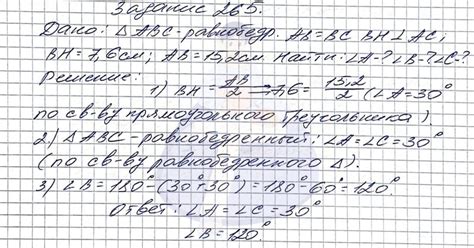 Задание 265.
Дано: △ABC-равнобедр. AB=BC BH⊥AC;
BH=7,6см; AB=15,2см. Найти: ∠A-? ∠B-? ∠C-?
Решение:
1) BH = AB/2 → 7,6 = 15,2/2 (∠A=30°
по св-ву прямоугольного треугольника).
2) △ABC-равнобедренный: ∠A=∠C=30°
(по св-ву равнобедренного △).
3) ∠B=180°-(30°+30°)=180°-60°=120°
Ответ: ∠A=∠C=30°
∠B=120°.